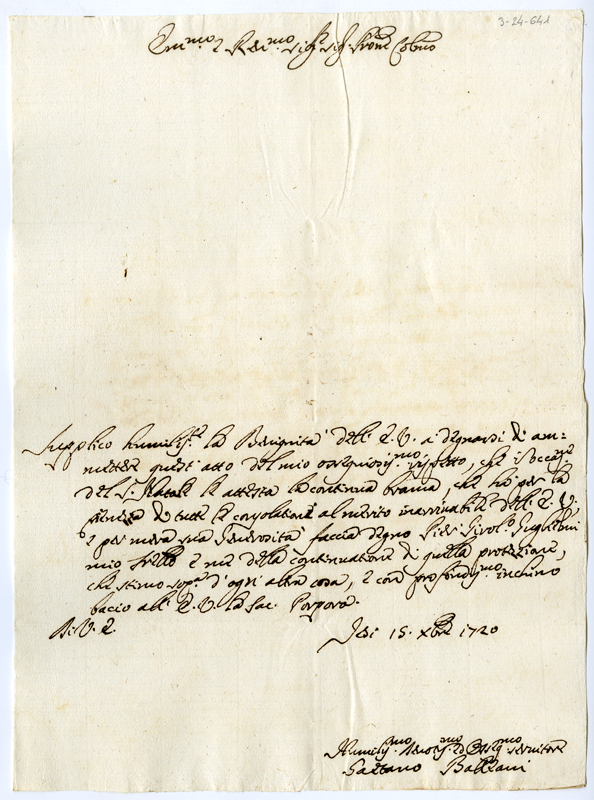 3-24-641
Em.mo e Rev.mo Sig.r Sig.r Prone Colmo
Supplico humilis.te la Benignità dell' E. V. a degnarsi di am=
metter quest' atto del mio ossequiosis.mo rispetto, che i occas.e
del S. Natale le attesta la continua brama, che hò per la
pienezza di tutte le consolationi al merito inarrivabile dell' E. V.
e per mera sua Generosità faccia degno Pier Girol.o Guglielmi
mio frello e me della continuatione di quella protezione,
che stimo sop.a d'ogni altra cosa, e con profondis.mo inchino
bacio all' E. V. la Sac. Porpora.
D. V. E.
Jesi 15 Xbre 1720
Humilis.mo Devotis.mo ed Obblig.mo servitore
Gaetano